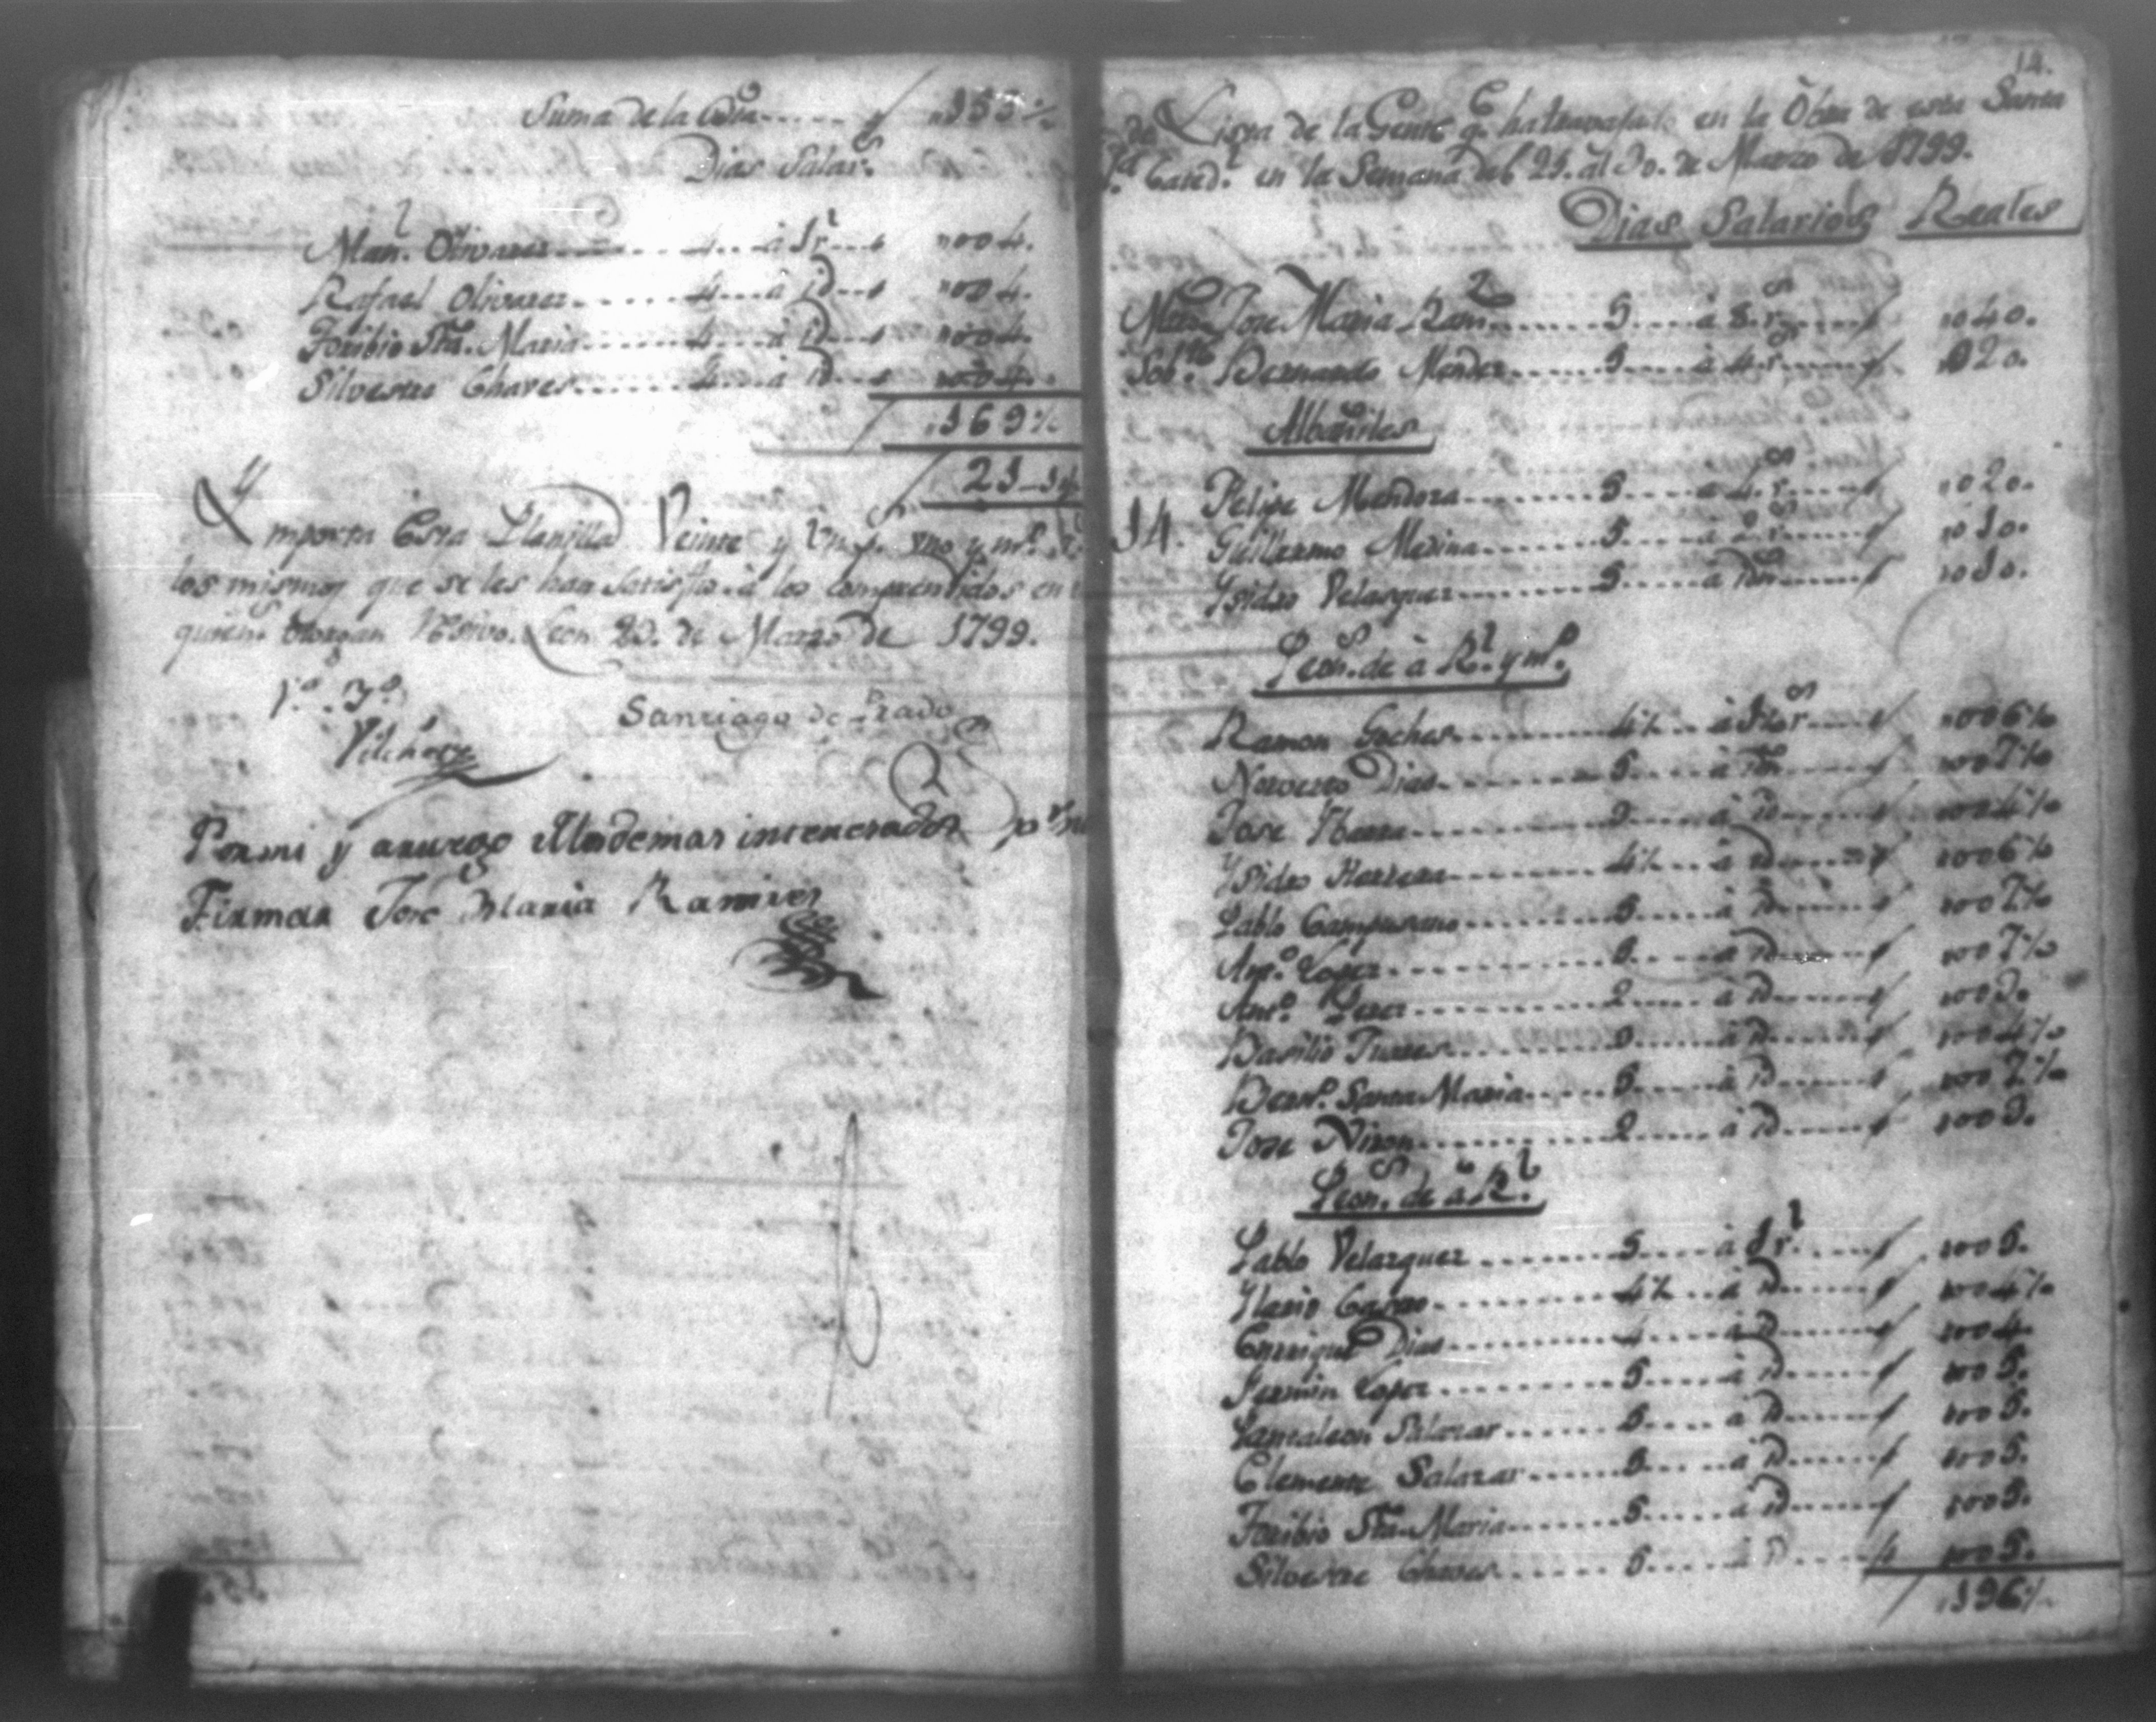 Suma de la Bta....... 153 ½
Dias Salar.s
Man.l Olivares....... 4... à 1 r.l... 004.
Rafael Olivares...... 4... à id... 004.
Toribio Sta. Maria...... 4... à id... 004.
Silvestre Chaves...... 4... à id... 004.
169 ½
21_1 ½
Ymporta Esta Planilla Veinte y Un p.s uno y m.o r.
los mismos que se les han satisfho. à los comprendidos en
quien.s otorgan Resivo. Leon 23. de Marzo de 1799.
Santiago de Prado
Vilchez
Por mi y aruego Mademas interesados
Firman Jose Maria Ramires
14.
Lista de la Gente q.e ha travajado en la Obra de esta Santa
Cated.l en la Semana del 25. al 30. de Marzo de 1799.
Dias Salarios Reales
Mtro. Jose Maria Ram.z...... 5... à 8. r.s... 040.
Sob.te Bernardo Mendes...... 5... à 4. r.s... 020.
Albañiles
Felipe Mendoza...... 5... à 4. r.s... 020.
14. Guillermo Medina...... 5... à 2. r.s... 010.
Ysidro Velasquez...... 5... à id... 010.
Peon.s de à R.l y m.o
Ramon Goches...... 4½... à 1½ r.s... 006 ½
Norverto Dias...... 5... à id... 007 ½
Jose Ybarra...... 3... à id... 004 ½
Ysidro Herrera...... 4½... à id... 006 ½
Pablo Campusano...... 5... à id... 007 ½
Ant.o Lopez...... 5... à id... 007 ½
Ant.o Perez...... 2... à id... 003.
Basilio Tunes...... 3... à id... 004 ½
Bern.o Santa Maria...... 5... à id... 007 ½
Jose Niron...... 2... à id... 003.
Peon.s de à R.l
Pablo Velazquez...... 5... à 1 r.l... 005.
Ylario Castro...... 4½... à id... 004 ½
Enrique Dias...... 4... à id... 004.
Fermin Lopez...... 5... à id... 005.
Pantaleon Salazar...... 5... à id... 005.
Clemente Salazar...... 5... à id... 005.
Toribio Sta. Maria...... 5... à id... 005.
Silvestre Chaves...... 5... à id... 005.
196 ½